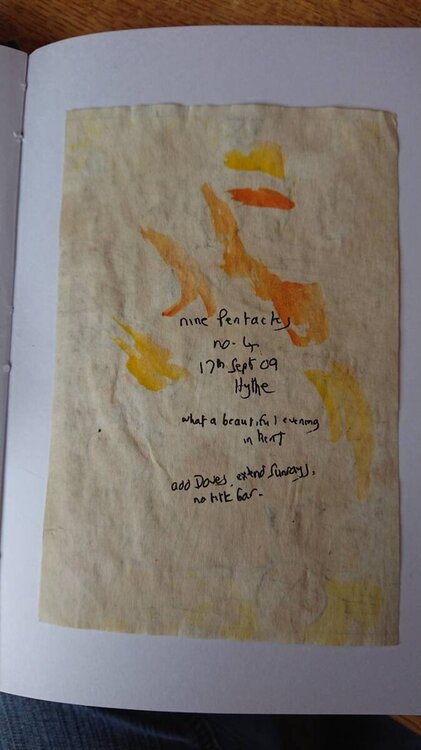 nine Pentacles
no. 4
17th Sept 09
Hythe
what a beautiful evening
in Kent
add Doves, extend Sunrays,
no title bar.